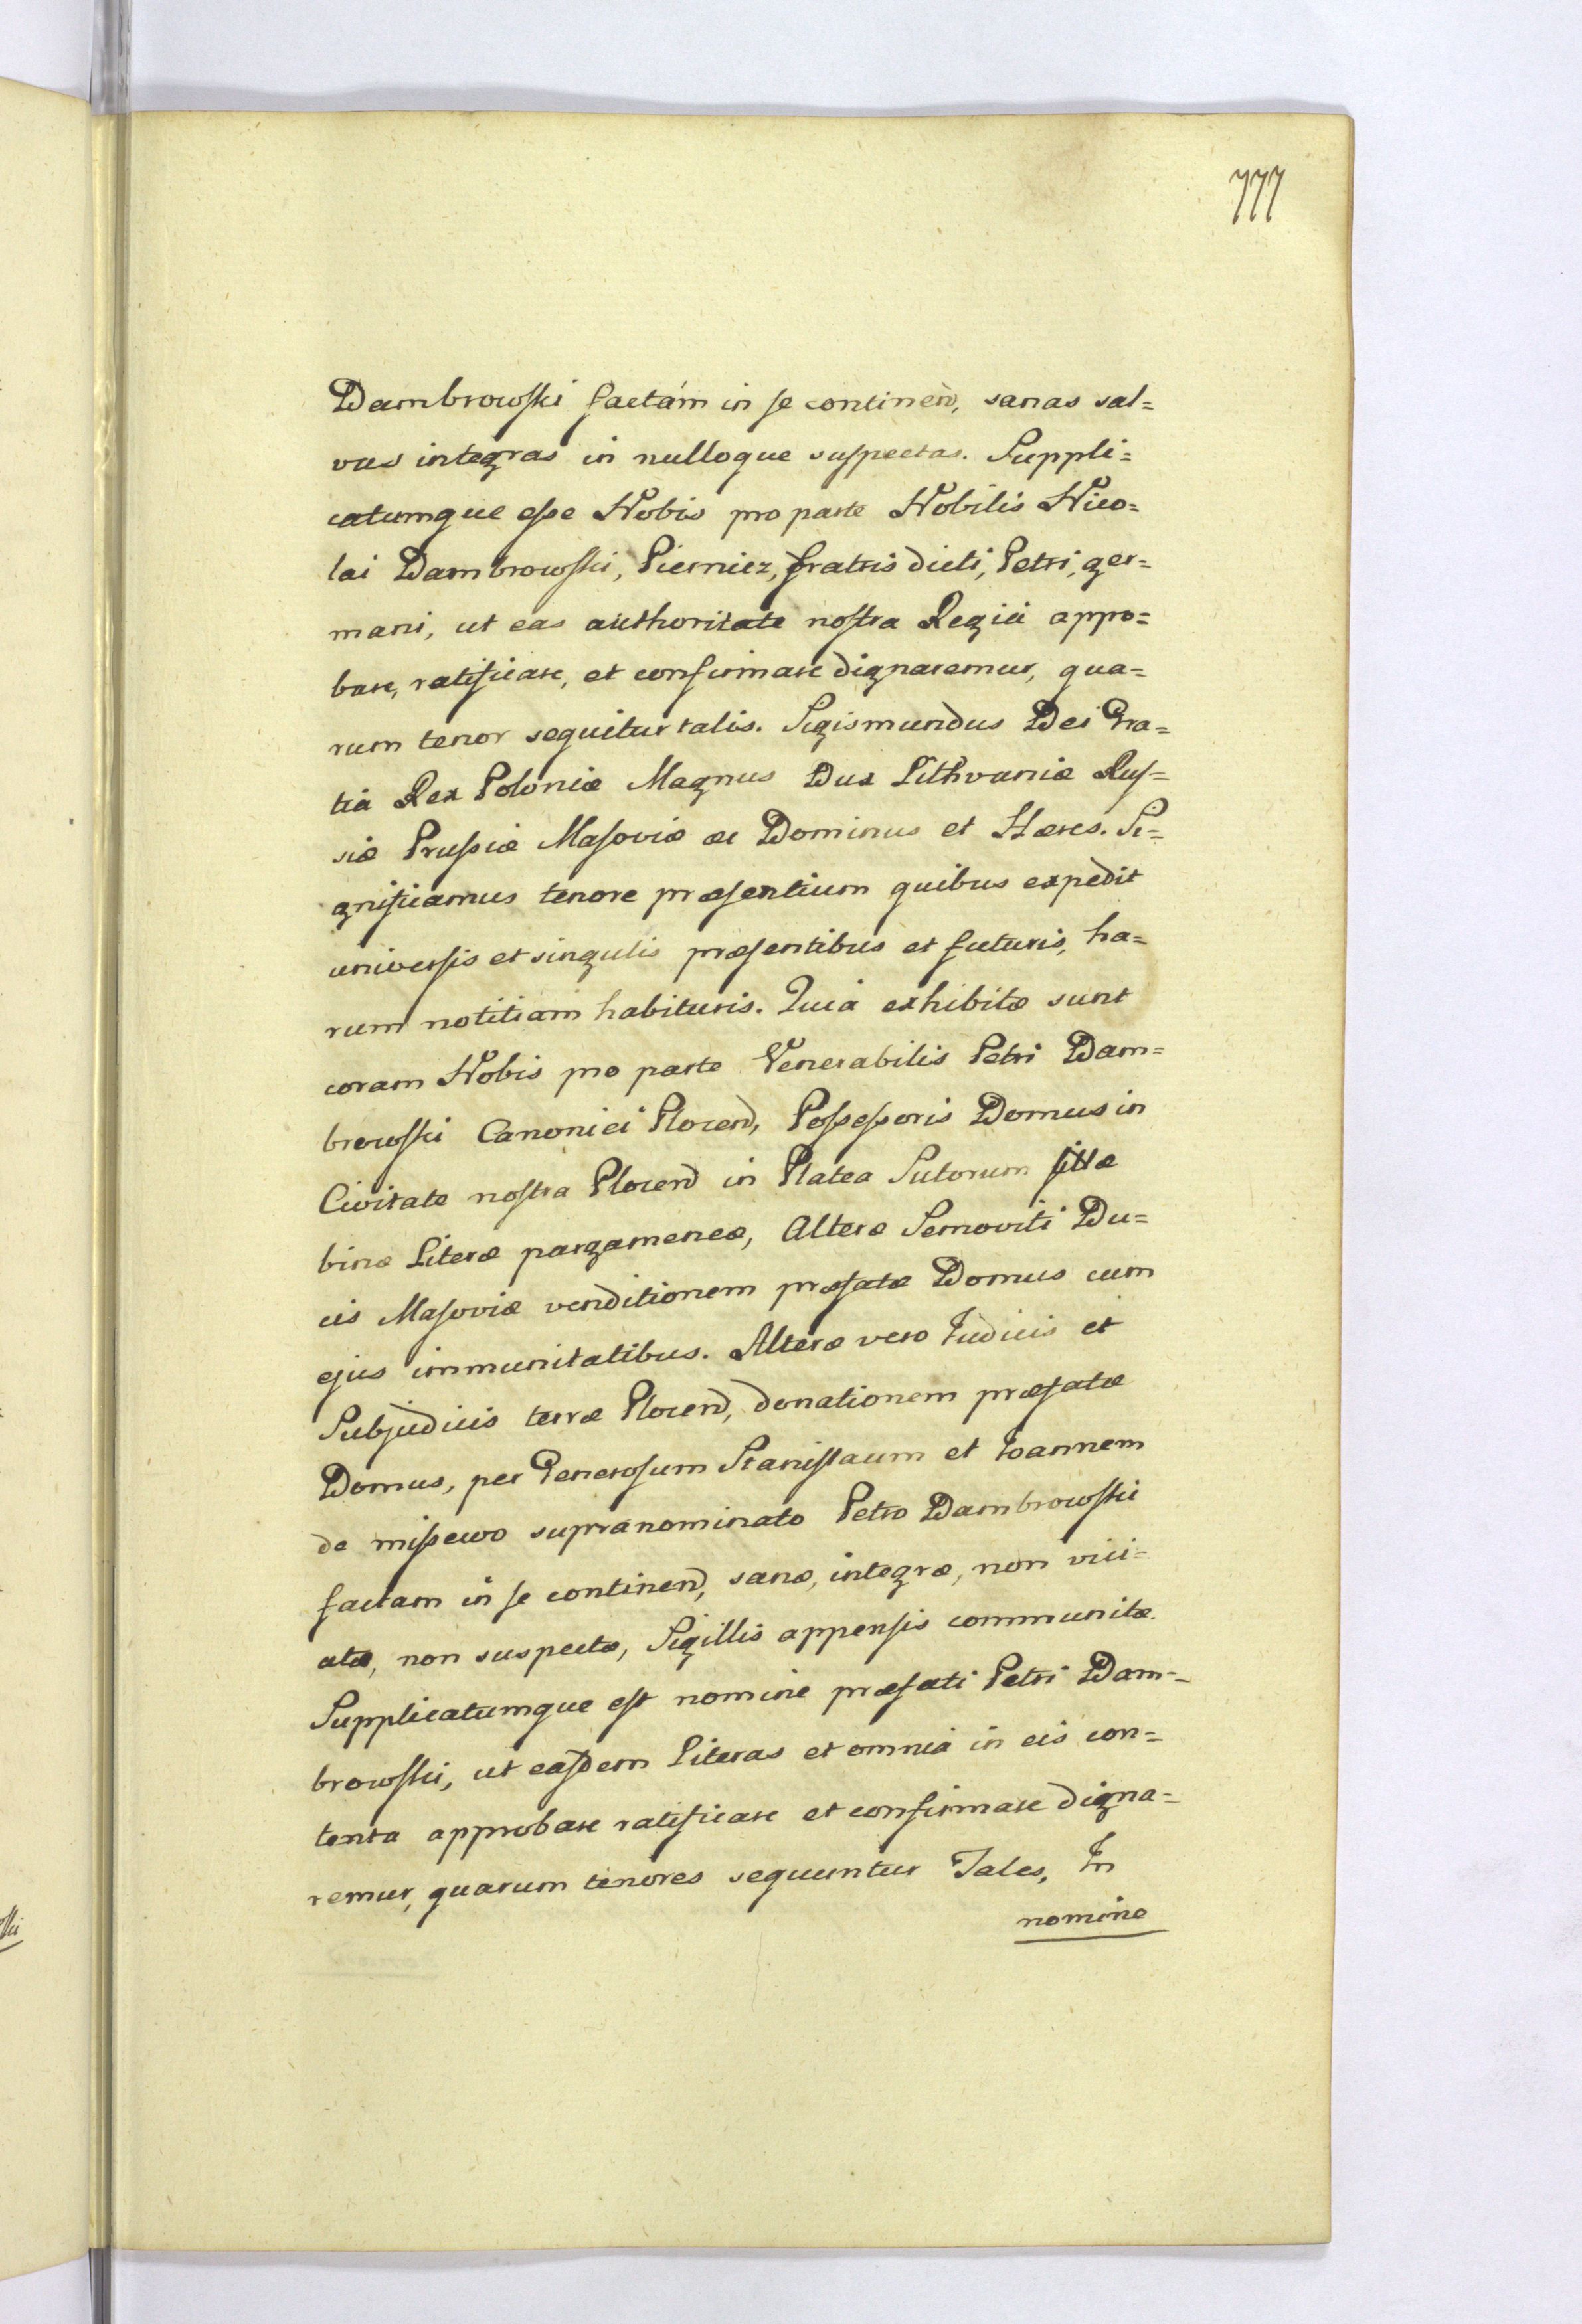 777
Dambrowski factam in se continend, sanas sal=
vas integras in nulloque suspectas. Suppli=
catumque esse Nobis pro parte Nobilis Nico=
lai Dambrowski, Pierniez, fratris dicti, Petri, ger=
mani, ut eas authoritate nostra Regia appro=
bare, ratificare, et confirmare dignaremur, qua=
rum tenor sequitur talis. Sigismundus Dei Gra=
tia Rex Poloniæ Magnus Dux Lithvaniæ Rus=
siæ Prussiæ Masoviæ ac Dominus et Hæres. Si=
gnificamus tenore præsentium quibus expedit
universis et singulis præsentibus et futuris, ha=
rum notitiam habituris. Quia exhibitæ sunt
coram Nobis pro parte Venerabilis Petri Dam=
browski Canonici Plocend, Possessoris Domus in
Civitate nostra Plocend in Platea Sutorum sittæ
binæ Literæ pargameneæ, Alteræ Semoviti Du=
cis Masoviæ venditionem præfatæ Domus cum
ejus immunitatibus. Alteræ vero Judicis et
Subjudicis terræ Plocend, donationem præfatæ
Domus, per Generosum Stanislaum et Joannem
de missewo supranominato Petro Dambrowski
factam in se continend, sanæ, integræ, non vici=
atæ, non suspectæ, Sigillis appensis communitæ.
Supplicatumque est nomine præfati Petri Dam=
browski, ut easdem Literas et omnia in eis con=
tenta approbare ratificare et confirmare digna=
remur, quarum tenores sequuntur Tales, In
nomine